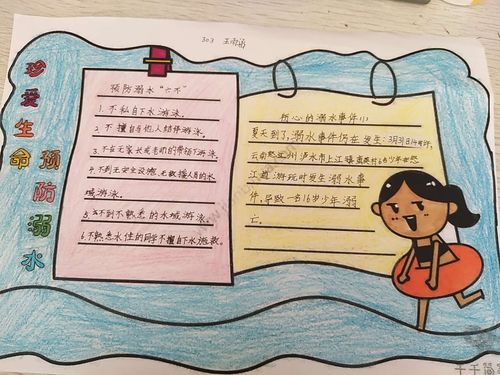 303 王雨涵
珍爱生命
预防溺水
预防溺水“六不”
1.不私自下水游泳。
2.不擅自与他人结伴游泳。
3.不在无家长或老师的带领下游泳。
4.不到无安全设施、无救援人员的水
域游泳。
5.不到不熟悉的水域游泳。
6.不熟悉水性的同学不擅自下水施救。
揪心的溺水事件!!!
夏天到了,溺水事件仍在发生:3月31日14时许,
云南怒江州泸水市上江镇
江边游玩时发生溺水事
件,导致一名16岁少年溺
亡。